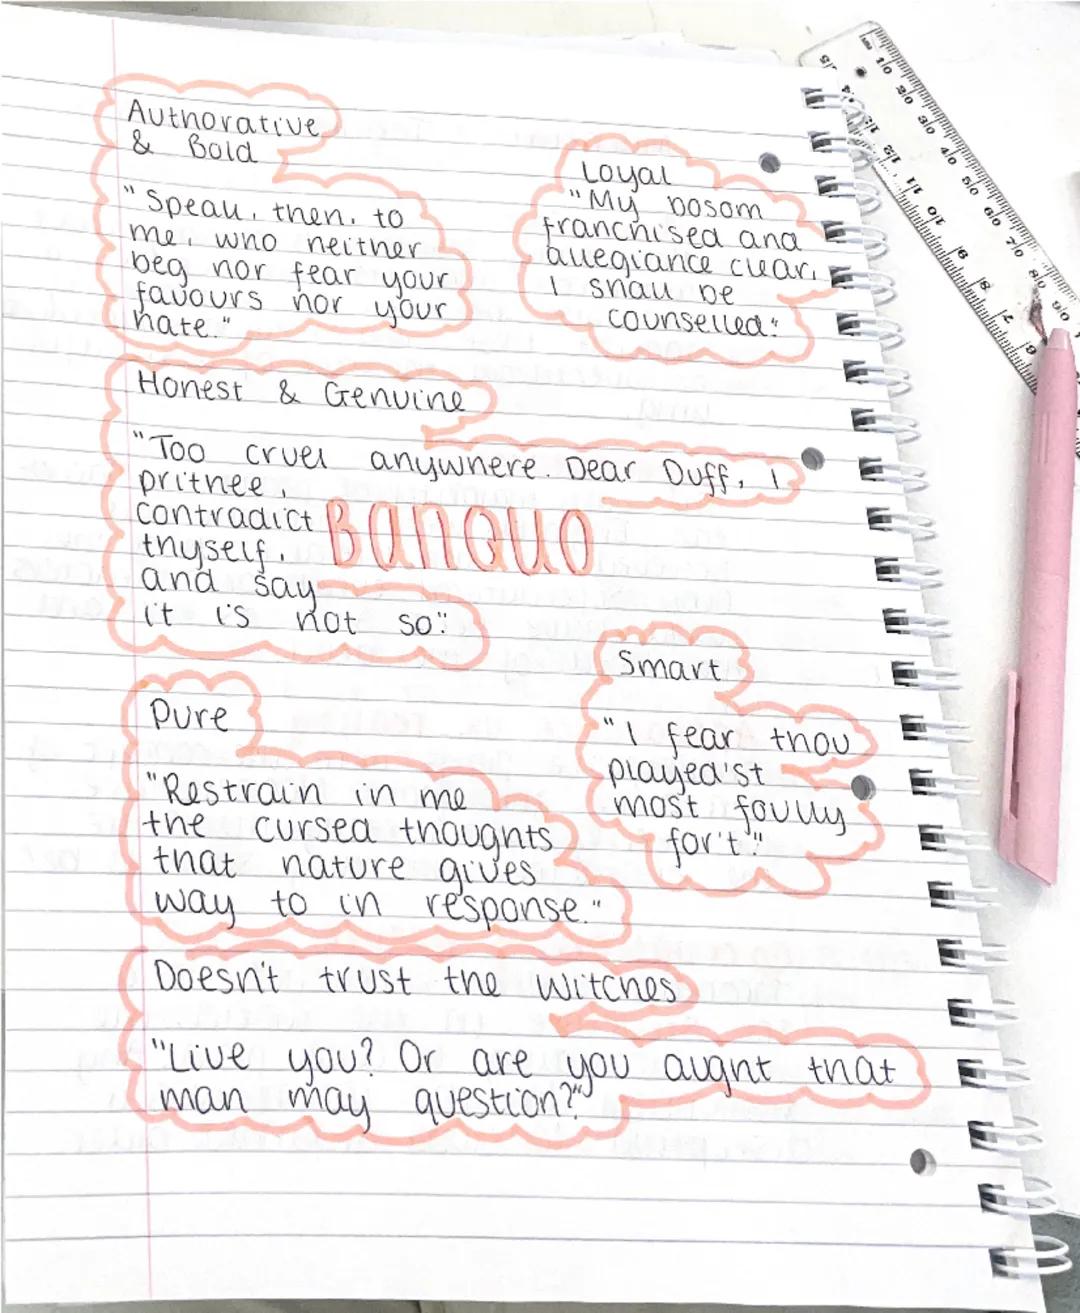 Authorative
& Bold
"Speak, then, to
me, who neither
beg nor fear your
favours nor your
hate."
Loyal
"My bosom
franchised and
allegiance clear,
I shall be
counselled."
Honest & Genuine
"Too cruel anywhere. Dear Duff, I
prithee,
contradict
thyself,
and say
it is not so."
BANQUO
Smart
"I fear thou
played'st
most foully
for't."
Pure
"Restrain in me
the cursed thoughts
that nature gives
way to in response."
Doesn't trust the witches
"Live you? Or are you aught that
man may question?"